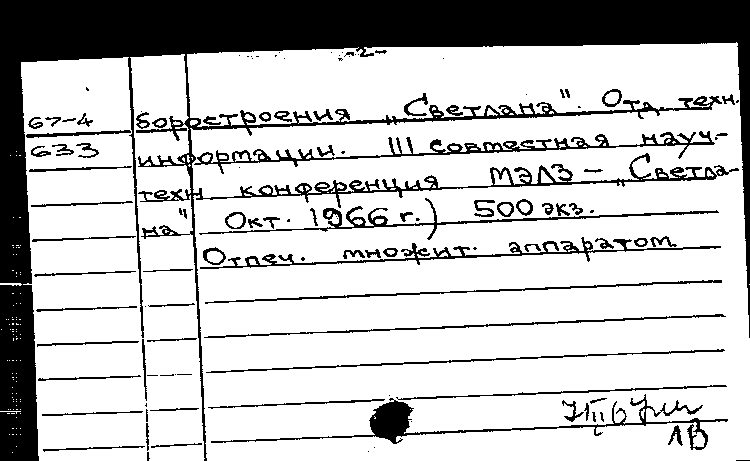 -2-
67-4 боростроения „Светлана". Отд. техн.
633 информации. III совместная науч-
техн конференция МЭЛЗ - „Светла-
на". Окт. 1966 г.) 500 экз.
Отпеч. множит. аппаратом
1В